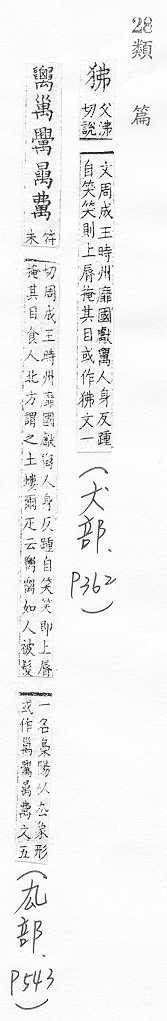 28
類篇
狒 父沸
切說
文周成王時州靡國獻人身反踵
自笑笑則上脣掩其目或作狒文一
(犬部. P362)
符
未
切周成王時州靡國獻人身反踵自笑笑即上脣
掩其目食人北方謂之土螻爾疋云如人被髮
一名梟陽从厹象形
或作文五
(厹部. P543)